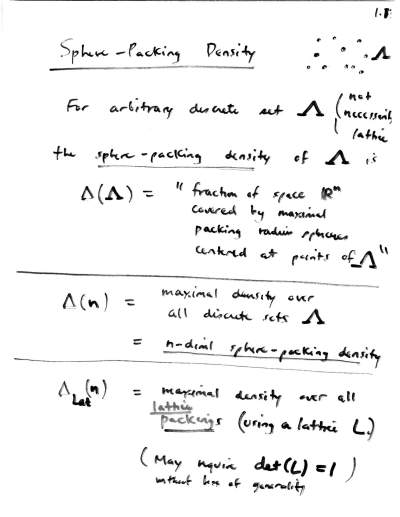 1.8
Sphere-Packing Density
Λ
For arbitrary discrete set Λ (not
necessarily
lattice
the sphere-packing density of Λ is
Δ(Λ) = "fraction of space ℝⁿ
covered by maximal
packing radius spheres
centered at points of Λ"
Δ(n) = maximal density over
all discrete sets Λ
= n-dim'l sphere-packing density
Δ_Lat(n) = maximal density over all
lattice
packings (using a lattice L.)
(May require det(L) = 1)
without loss of generality